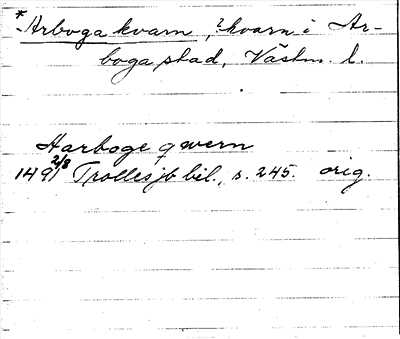 *Arboga kvarn, ?kvarn i Ar-
boga stad, Västm. l.
Harboge qwern
1491 2/8 Trolles jb bil., s. 245. orig.